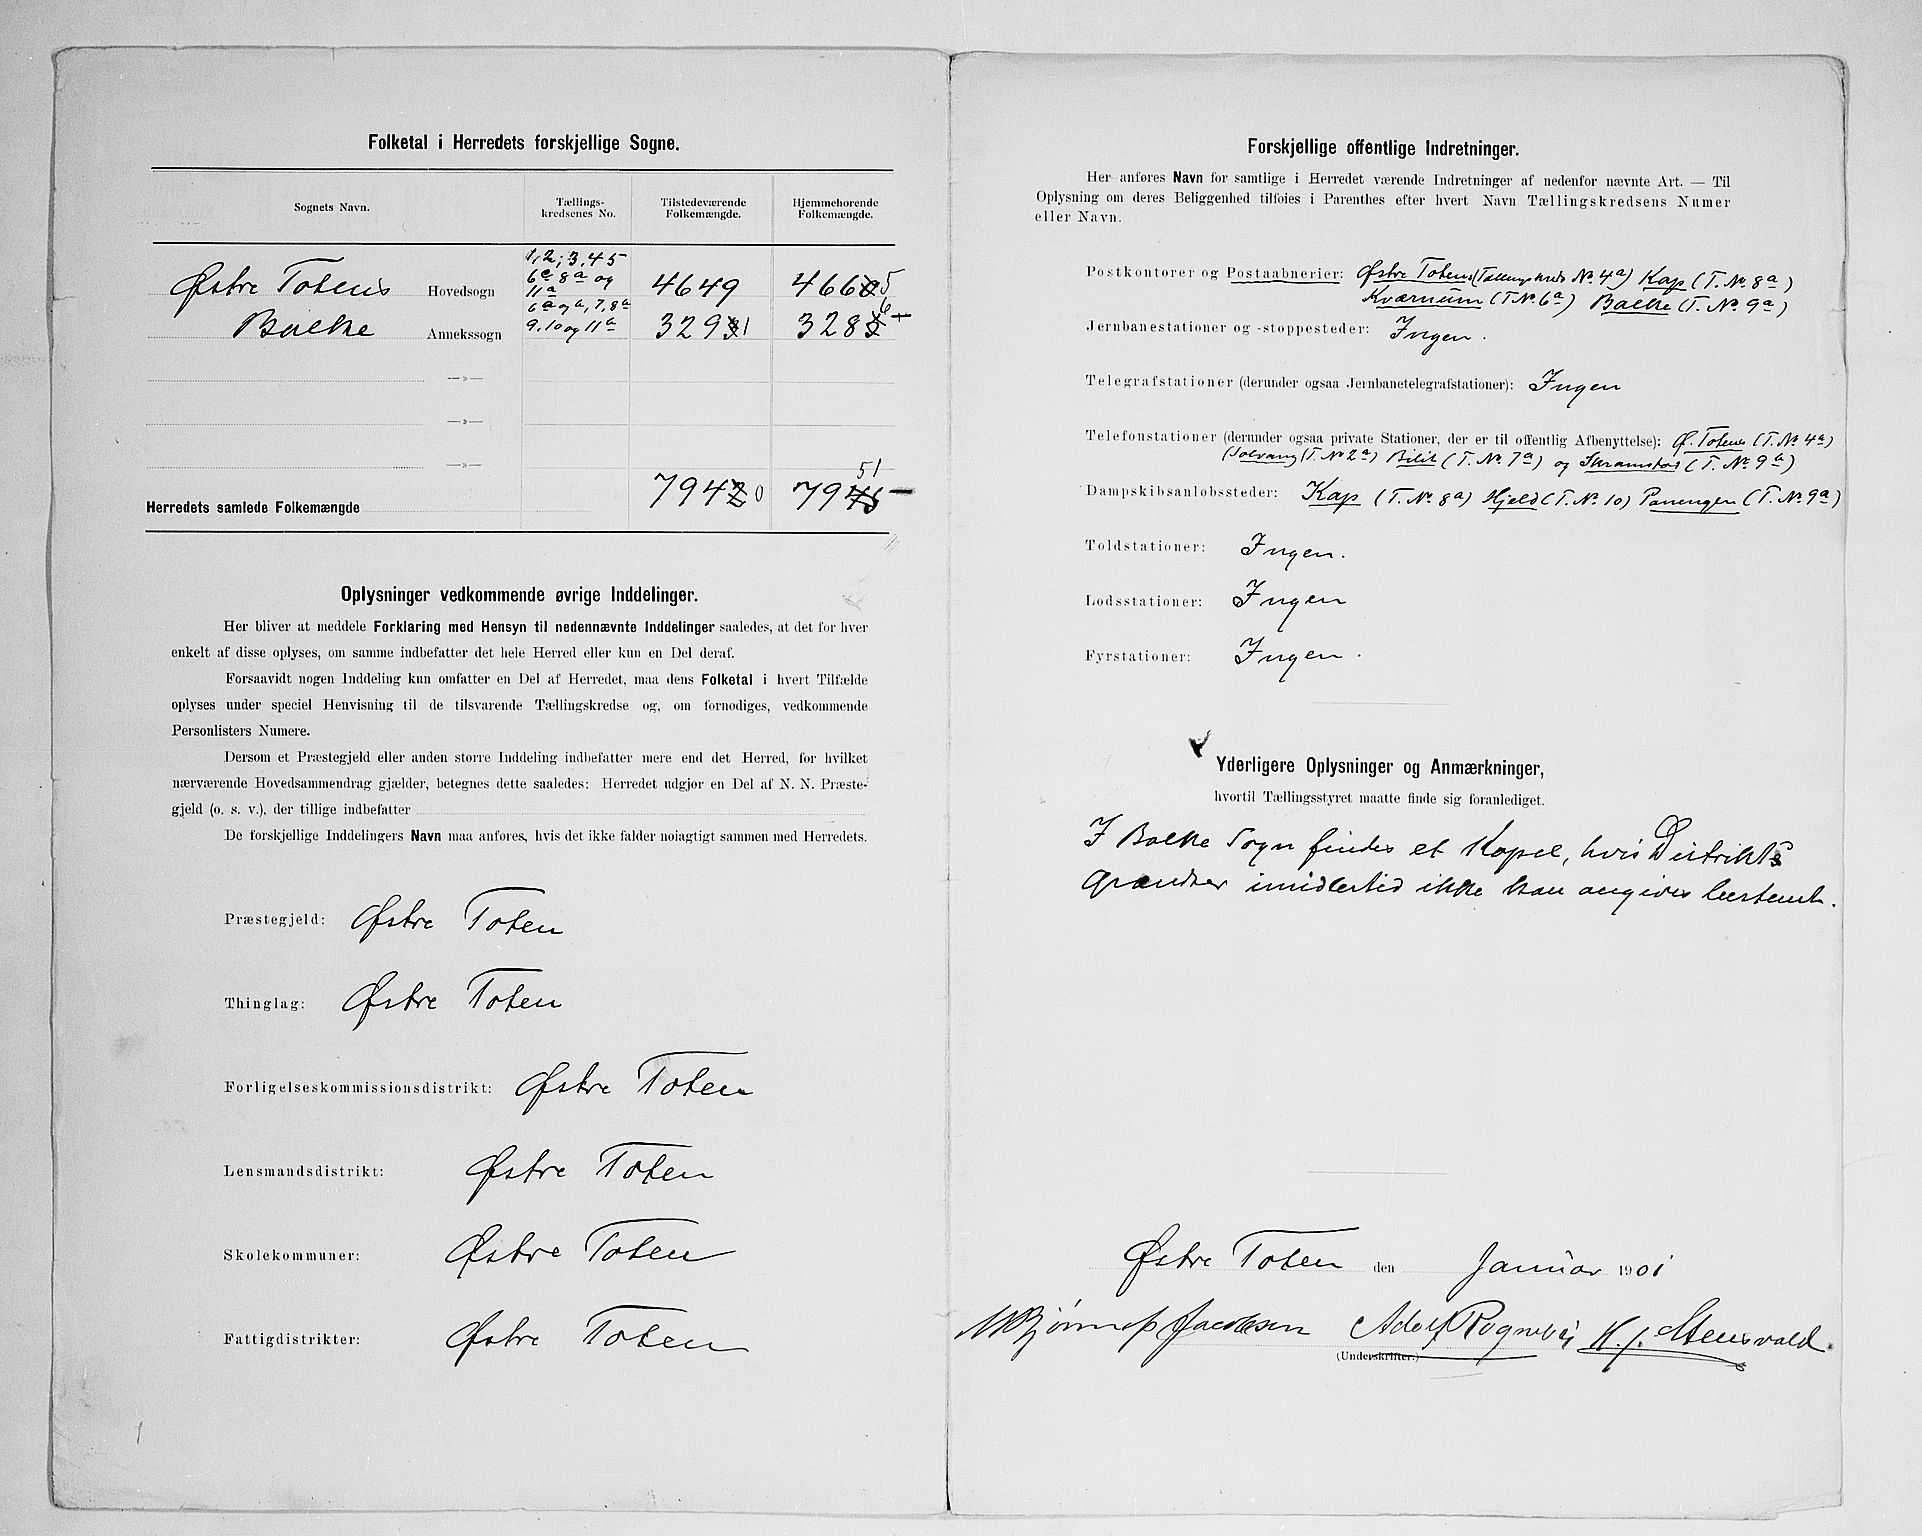 Folketal i Herredets forskjellige Sogne.
Sognets Navn.
Tællings-
kredsenes No.
Tilstedeværende
Folkemængde.
Hjemmehørende
Folkemængde.
1, 2, 3, 4 5
6c 8a og
11a
Østre Totens Hovedsogn 4649 46605
6a og b, 7, 8b
9, 10 og 11b
Balke Annekssogn 32931 32856
—»—
—»—
—»—
51
Herredets samlede Folkemængde 79420 7945
Oplysninger vedkommende øvrige Inddelinger.
Her bliver at meddele Forklaring med Hensyn til nedennævnte Inddelinger saaledes, at det for hver
enkelt af disse oplyses, om samme indbefatter det hele Herred eller kun en Del deraf.
Forsaavidt nogen Inddeling kun omfatter en Del af Herredet, maa dens Folketal i hvert Tilfælde
oplyses under speciel Henvisning til de tilsvarende Tællingskredse og, om fornødiges, vedkommende
Personlisters Numere.
Dersom et Præstegjeld eller anden større Inddeling indbefatter mere end det Herred, for hvilket
nærværende Hovedsammendrag gjælder, betegnes dette saaledes: Herredet udgjør en Del af N. N. Præste-
gjeld (o. s. v.), der tillige indbefatter
De forskjellige Inddelingers Navn maa anføres, hvis det ikke falder nøiagtigt sammen med Herredets.
Præstegjeld: Østre Toten
Thinglag: Østre Toten
Forligelseskommissionsdistrikt: Østre Toten
Lensmandsdistrikt: Østre Toten
Skolekommuner: Østre Toten
Fattigdistrikter: Østre Toten
Forskjellige offentlige Indretninger.
Her anføres Navn for samtlige i Herredet værende Indretninger af nedenfor nævnte Art. — Til
Oplysning om deres Beliggenhed tilføies i Parenthes efter hvert Navn Tællingskredsens Numer
eller Navn.
Postkontorer og Postaabnerier: Østre Totens (Tællingskreds No. 4a) Kap (T. No. 8a)
Kværnum (T. No. 6a) Balke (T. No. 9a)
Jernbanestationer og -stoppesteder: Ingen.
Telegrafstationer (derunder ogsaa Jernbanetelegrafstationer): Ingen
Telefonstationer (derunder ogsaa private Stationer, der er til offentlig Afbenyttelse): Ø. Totens (T. No. 4a)
Solvang (T. No. 2a) Bilit (T. No. 7a) og Skramstad (T. No. 9b)
Dampskibsanløbssteder: Kap (T. No. 8a) Hjeld (T. No. 10) Panengen (T. No. 9a)
Toldstationer: Ingen.
Lodsstationer: Ingen
Fyrstationer: Ingen.
Yderligere Oplysninger og Anmærkninger,
hvortil Tællingsstyret maatte finde sig foranlediget.
I Balke Sogn findes et Kapel, hvis Distrikts
Grændser imidlertid ikke kan angives bestemt.
Østre Toten den Januar 1901
Jacobsen Adolf Rognebÿ K. J. Stensvold.
(Underskrifter.)